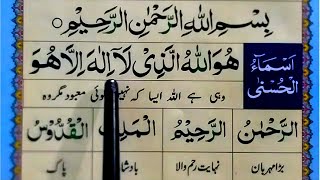 بِسْمِ اللهِ الرَّحْمٰنِ الرَّحِيْمِ
اَسْمَاءُ الْحُسْنٰى
هُوَ اللهُ الَّذِىْ لَآ اِلٰهَ اِلَّا هُوَ
وہی ہے اللہ ایسا کہ نہیں کوئی معبود مگر وہ
اَلرَّحْمٰنُ الرَّحِيْمُ الْمَلِكُ الْقُدُّوْسُ
بڑا مہربان نہایت رحم والا بادشاہ پاک